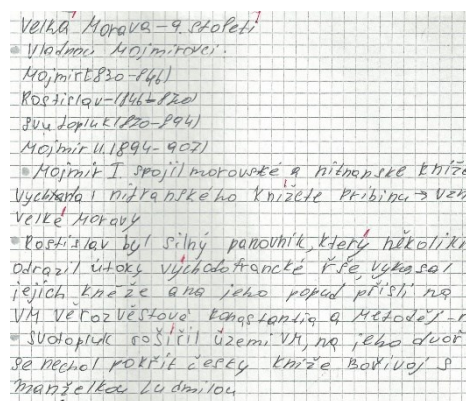 Velká Morava - 9. století
Vládnou Mojmírovci.
Mojmír (830-846)
Rostislav - (846-870)
Svatopluk (870-894)
Mojmír II. (894-907)
Mojmír I. spojil moravské a nitranské kníže
Vychnal nitranského knížete Pribinu → vzn
Velké Moravy
Rostislav byl silný panovník, který několikr
odrazil útoky východofrancké říše, vykázal
jejich kněze a na jeho popud přišli na
VM věrozvěstové Konstantin a Metoděj -
Svatopluk rozšířil území VM, na jeho dvoř
se nechal pokřtít český kníže Bořivoj s
manželkou Ludmilou